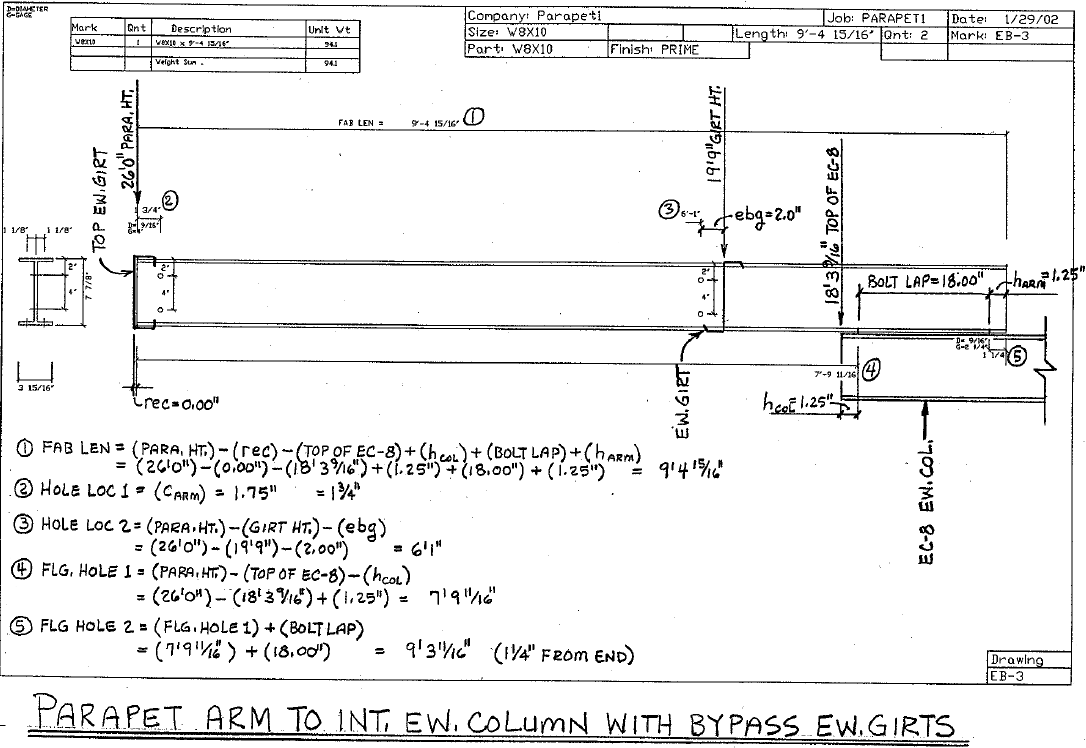 D=DIAMETER
G=GAGE
Mark Qnt Description Unit Wt
W8X10 1 W8X10 x 9'-4 15/16" 94.1
Weight Sum . 94.1
Company: Parapet1 Job: PARAPET1 Date: 1/29/02
Size: W8X10 Length: 9'-4 15/16" Qnt: 2 Mark: EB-3
Part: W8X10 Finish: PRIME
FAB LEN = 9'-4 15/16" ①
26'0" PARA. HT.
TOP EW. GIRT
19'9" GIRT HT.
18'3 9/16" TOP OF EC-8
1 3/4" ②
D= 9/16"
③ 6'-1" ebg=2.0"
1 1/8" 1 1/8"
2"
4"
7 7/8"
3 15/16"
2"
4"
2"
4"
BOLT LAP=18.00" hARM=1.25"
D= 9/16"
G=2 1/4"
1 1/4" ⑤
7'-9 11/16" ④
rec=0.00"
EW. GIRT
hCOL=1.25"
EC-8 EW. COL.
① FAB LEN = (PARA. HT.)-(rec)-(TOP OF EC-8)+(hCOL)+(BOLT LAP)+(hARM)
= (26'0")-(0.00")-(18'3 9/16")+(1.25")+(18.00")+(1.25") = 9'4 15/16"
② HOLE LOC 1 = (CARM) = 1.75" = 1 3/4"
③ HOLE LOC 2 = (PARA. HT.)-(GIRT HT.)-(ebg)
= (26'0")-(19'9")-(2.00") = 6'1"
④ FLG. HOLE 1 = (PARA. HT.)-(TOP OF EC-8)-(hCOL)
= (26'0")-(18'3 9/16")+(1.25") = 7'9 11/16"
⑤ FLG HOLE 2 = (FLG. HOLE 1) + (BOLT LAP)
= (7'9 11/16") + (18.00") = 9'3 11/16" (1 1/4" FROM END)
Drawing
EB-3
PARAPET ARM TO INT. EW. COLUMN WITH BYPASS EW. GIRTS